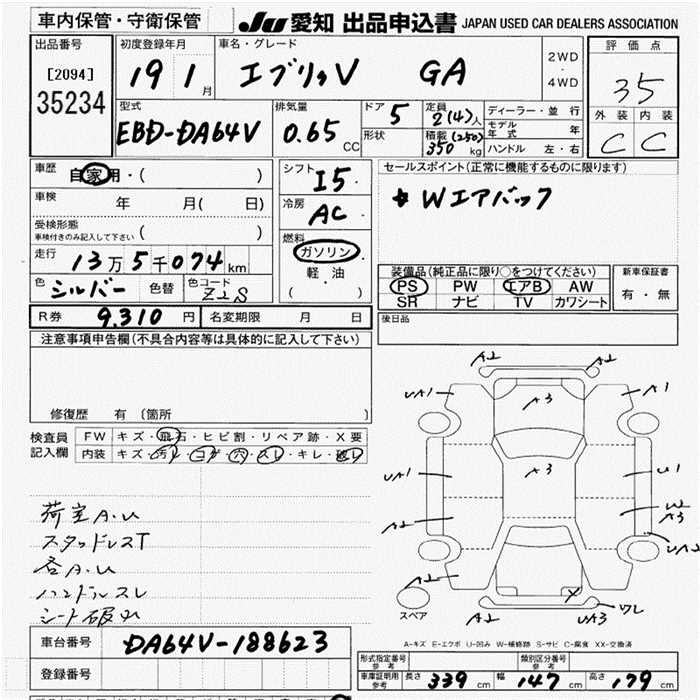 車内保管・守衛保管 JU 愛知 出品申込書 JAPAN USED CAR DEALERS ASSOCIATION
出品番号
[2094]
35234
初度登録年月
19 1 月
車名・グレード
エブリィV GA
2WD
・
4WD
評価点
35
外装 内装
C C
型式
EBD-DA64V
排気量
0.65 CC
ドア 5
形状
定員 2(4)人
積載 (250)
350 kg
ディーラー・並行
モデル年式 年
ハンドル 左・右
車歴
自家用・( )
車検 年 月( 日)
受検形態
車検付きのみ記入して下さい ( )
走行
13万5千074km
色 シルバー 色替 色コード Z2S
シフト
I5
冷房
AC
燃料
ガソリン
軽・油
( )
セールスポイント(正常に機能するものに限ります)
Wエアバック
装備品(純正品に限り○をつけてください)
PS PW エアB AW
SR ナビ TV カワシート
新車保証書
有・無
後日品
R券 9,310 円 名変期限 月 日
注意事項申告欄(不具合内容等は具体的に記入して下さい)
修復歴 有 〔箇所 〕
検査員
記入欄
FW キズ・飛石・ヒビ割・リペア跡・X要
内装 キズ・汚レ・コゲ・穴・スレ・キレ・破レ
荷室A.U
スタッドレスT
各A.U
ハンドルスレ
シート破れ
A2 A2
UA1 A3 A1
UA1 A3 U1
A2 W2
A3
UA2
A2 A2 UA3 ワレ
スペア
A-キズ E-エクボ U-凹み W-補修跡 S-サビ C-腐食 XX-交換済
車台番号 DA64V-188623
登録番号
形式指定番号
参考
類別区分番号
参考
車庫証明用
参考
長さ 339 cm 幅 147 cm 高さ 179 cm